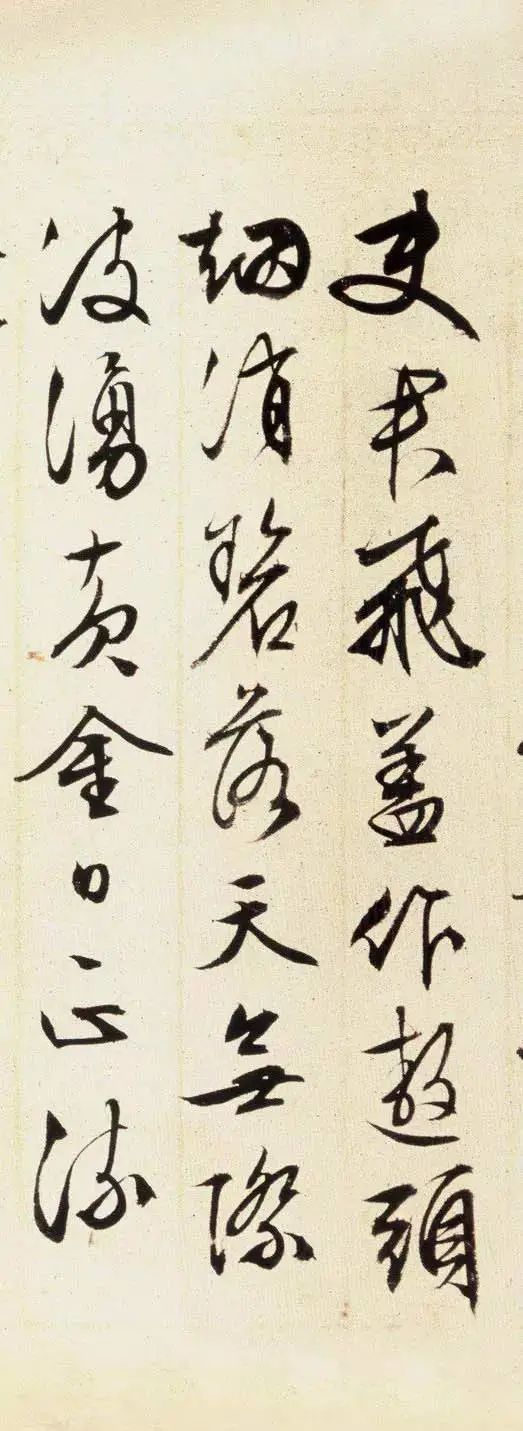 史君飛盖作遨頭
烟消碧落天無際
波湧黄金日正流